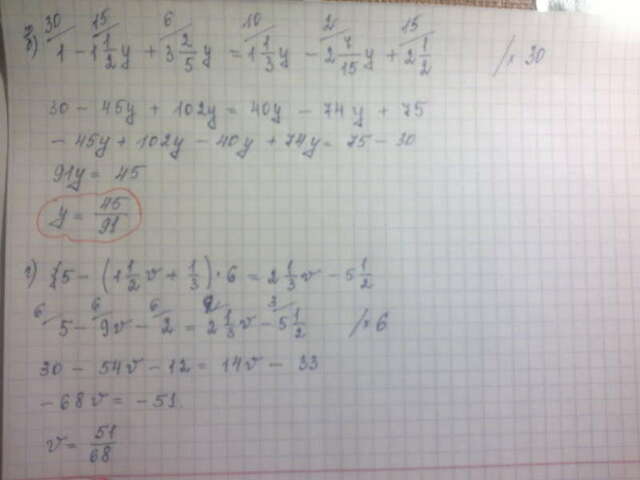 30 15 6 10 2 15
в) 1 - 1 1/2 y + 3 2/5 y = 1 1/3 y - 2 7/15 y + 2 1/2 /× 30
30 - 45y + 102y = 40y - 74y + 75
- 45y + 102y - 40y + 74y = 75 - 30
91y = 45
y = 45/91
г) 5 - (1 1/2 v + 1/3) · 6 = 2 1/3 v - 5 1/2
6 6 6 2 3
5 - 9v - 2 = 2 1/3 v - 5 1/2 /× 6
30 - 54v - 12 = 14v - 33
- 68v = - 51
v = 51/68